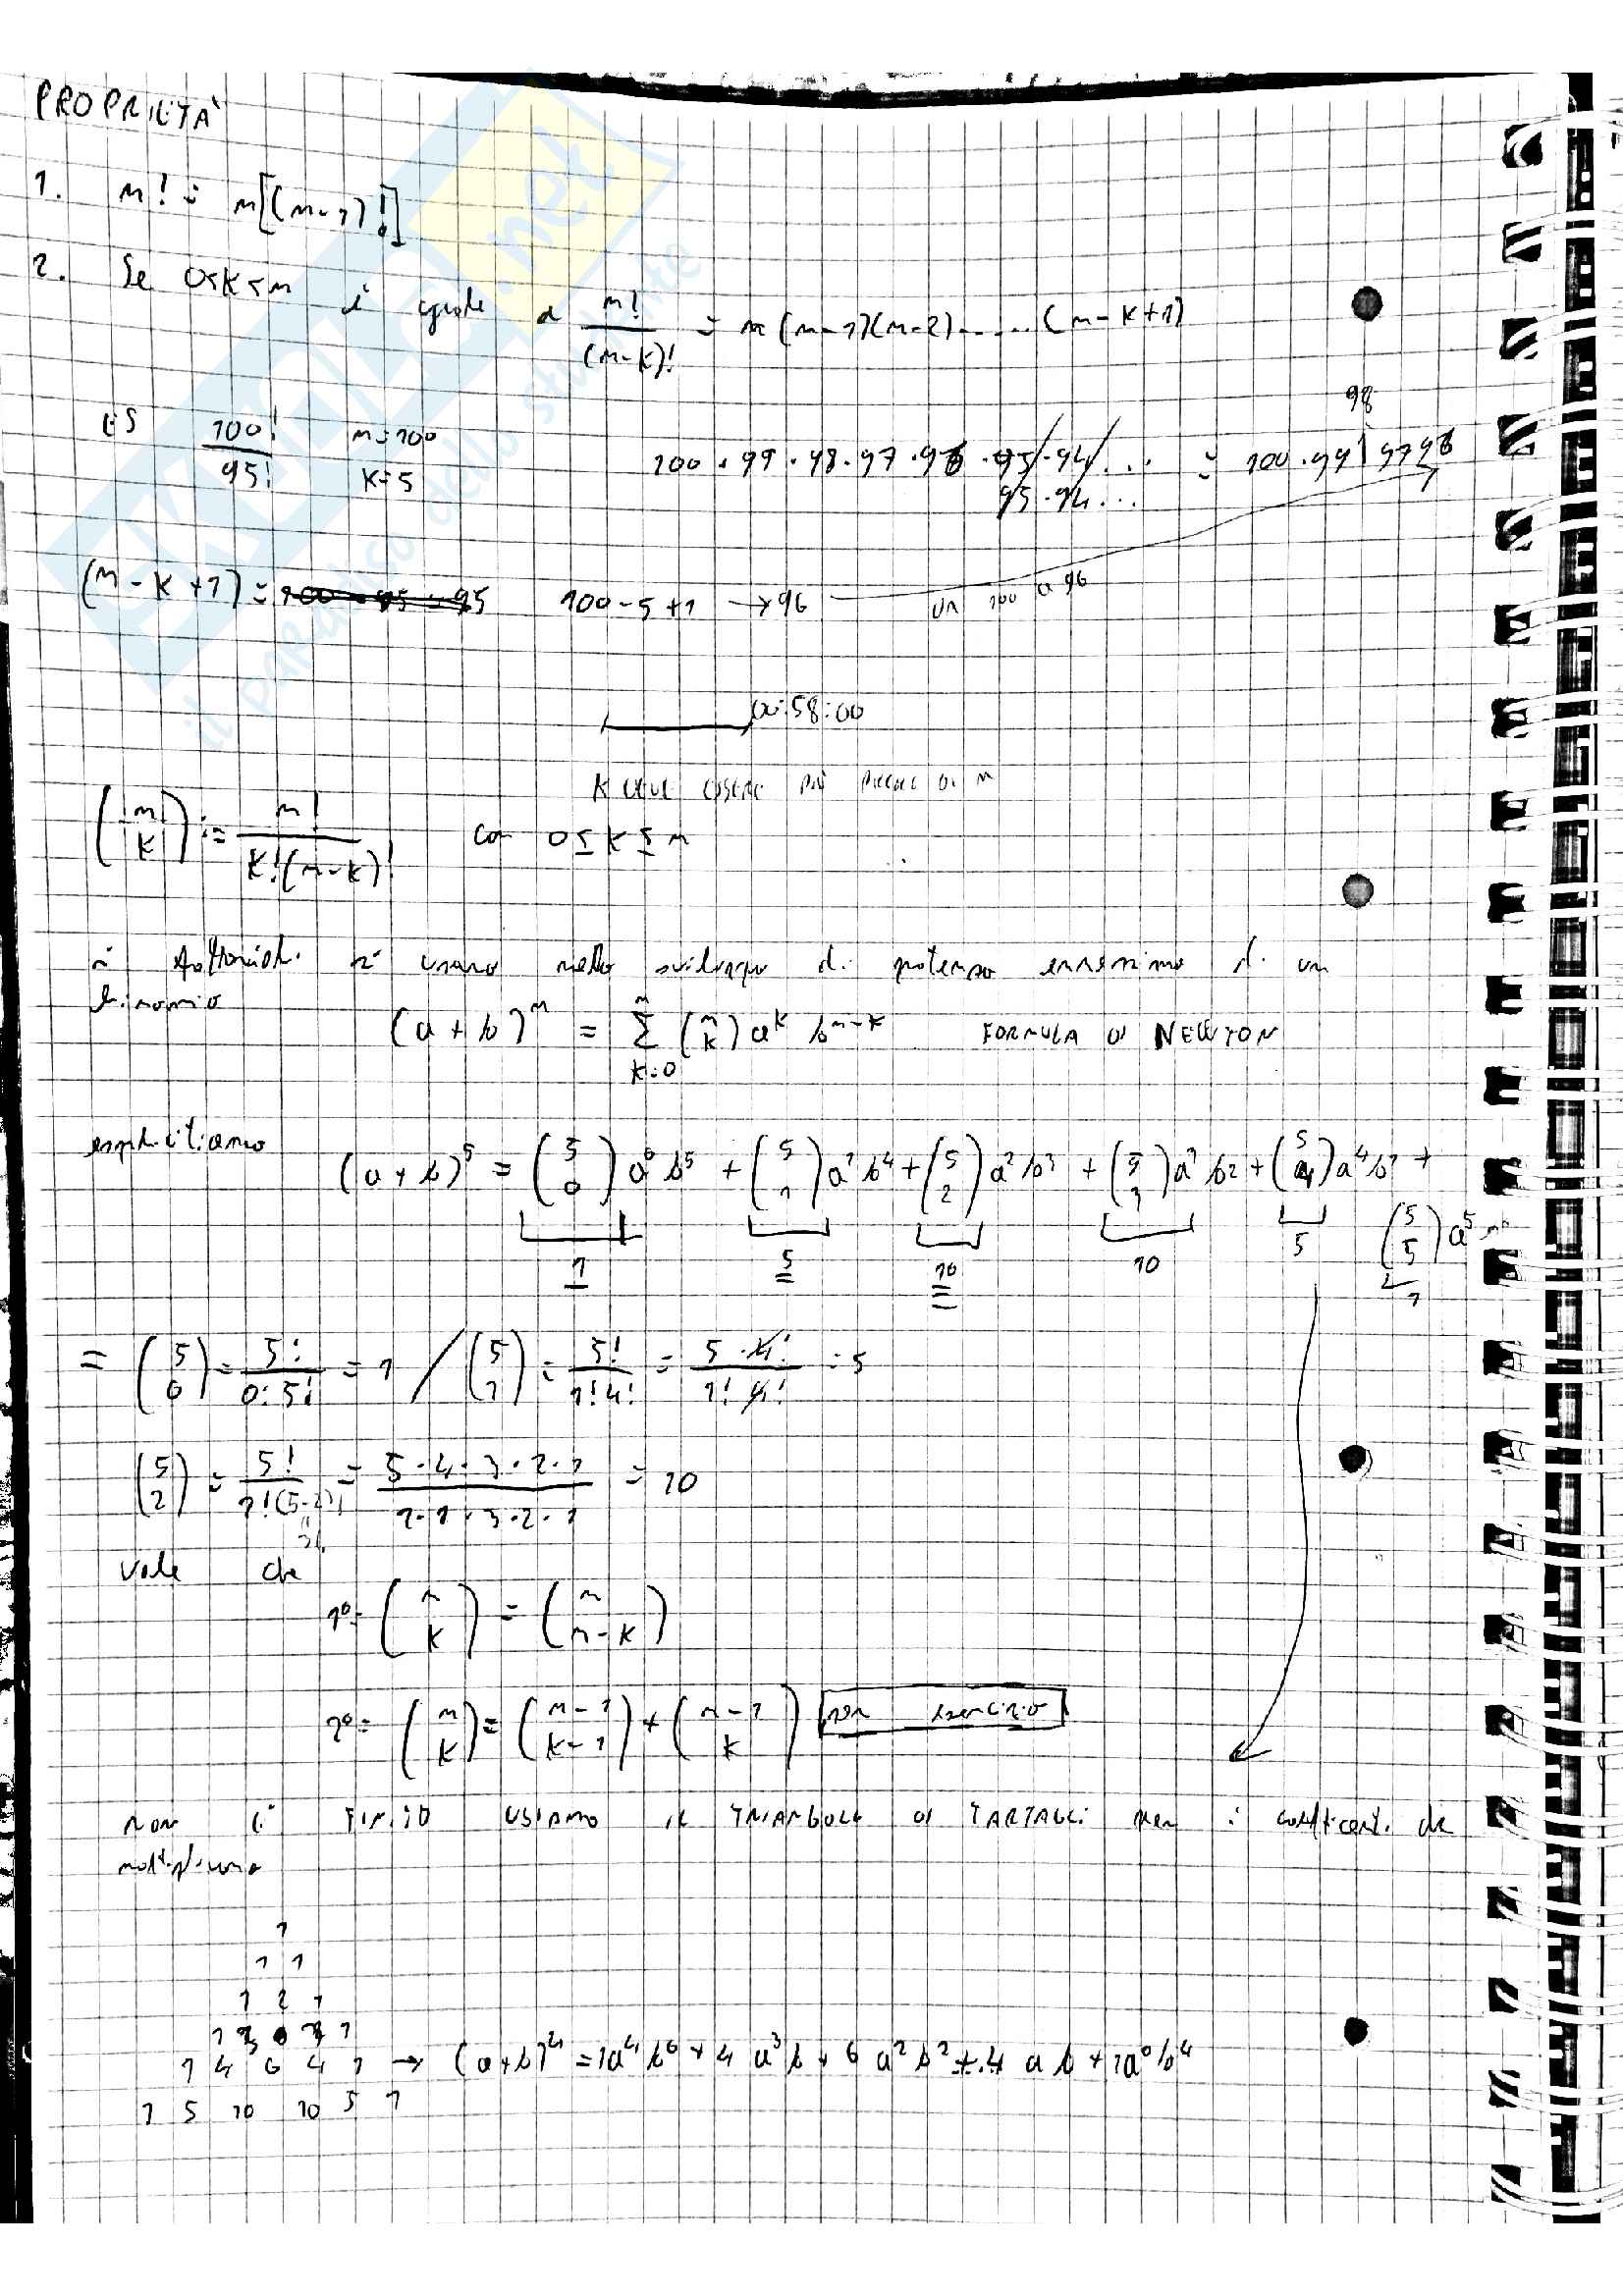 PROPRIETÀ
1. n! = n[(n-1)!]
2. Se 0≤K≤n è uguale a n!/(n-k)! = n(n-1)(n-2).....(n-k+1)
ES 100!/95! n=100 K=5 100·99·98·97·96·95·94... / 95·94... = 100·99 98 97 96
(n-k+1) = 100-5+1 → 96 da 100 a 96
00:58:00
K DEVE ESSERE PIÙ PICCOLO DI n
(n k) := n!/k!(n-k)! con 0≤k≤n
i fattoriali si usano nello sviluppo di potenza ennesima di un
binomio
(a+b)^n = Σ k=0 n (n k) a^k b^(n-k) FORMULA DI NEWTON
esplicitiamo
(a+b)^5 = (5 0)a^0 b^5 + (5 1)a^1 b^4 + (5 2)a^2 b^3 + (5 3)a^3 b^2 + (5 4)a^4 b^1 +
(5 5)a^5
1 5 10 10 5 1
= (5 0) = 5!/0!5! = 1 / (5 1) = 5!/1!4! = 5·4!/1!4! = 5
(5 2) = 5!/2!(5-2)! = 5·4·3·2·1/2·1·3·2·1 = 10
3!
vale che
1°= (n k) = (n n-k)
2°= (n k) = (n-1 k-1) + (n-1 k) per esercizio
USIAMO IL TRIANGOLO DI TARTAGLI per i coefficenti da
1
1 1
1 2 1
1 3 3 1
1 4 6 4 1 → (a+b)^4 = 1a^4 b^0 + 4 a^3 b + 6 a^2 b^2 + 4 a b + 1a^0 b^4
1 5 10 10 5 1